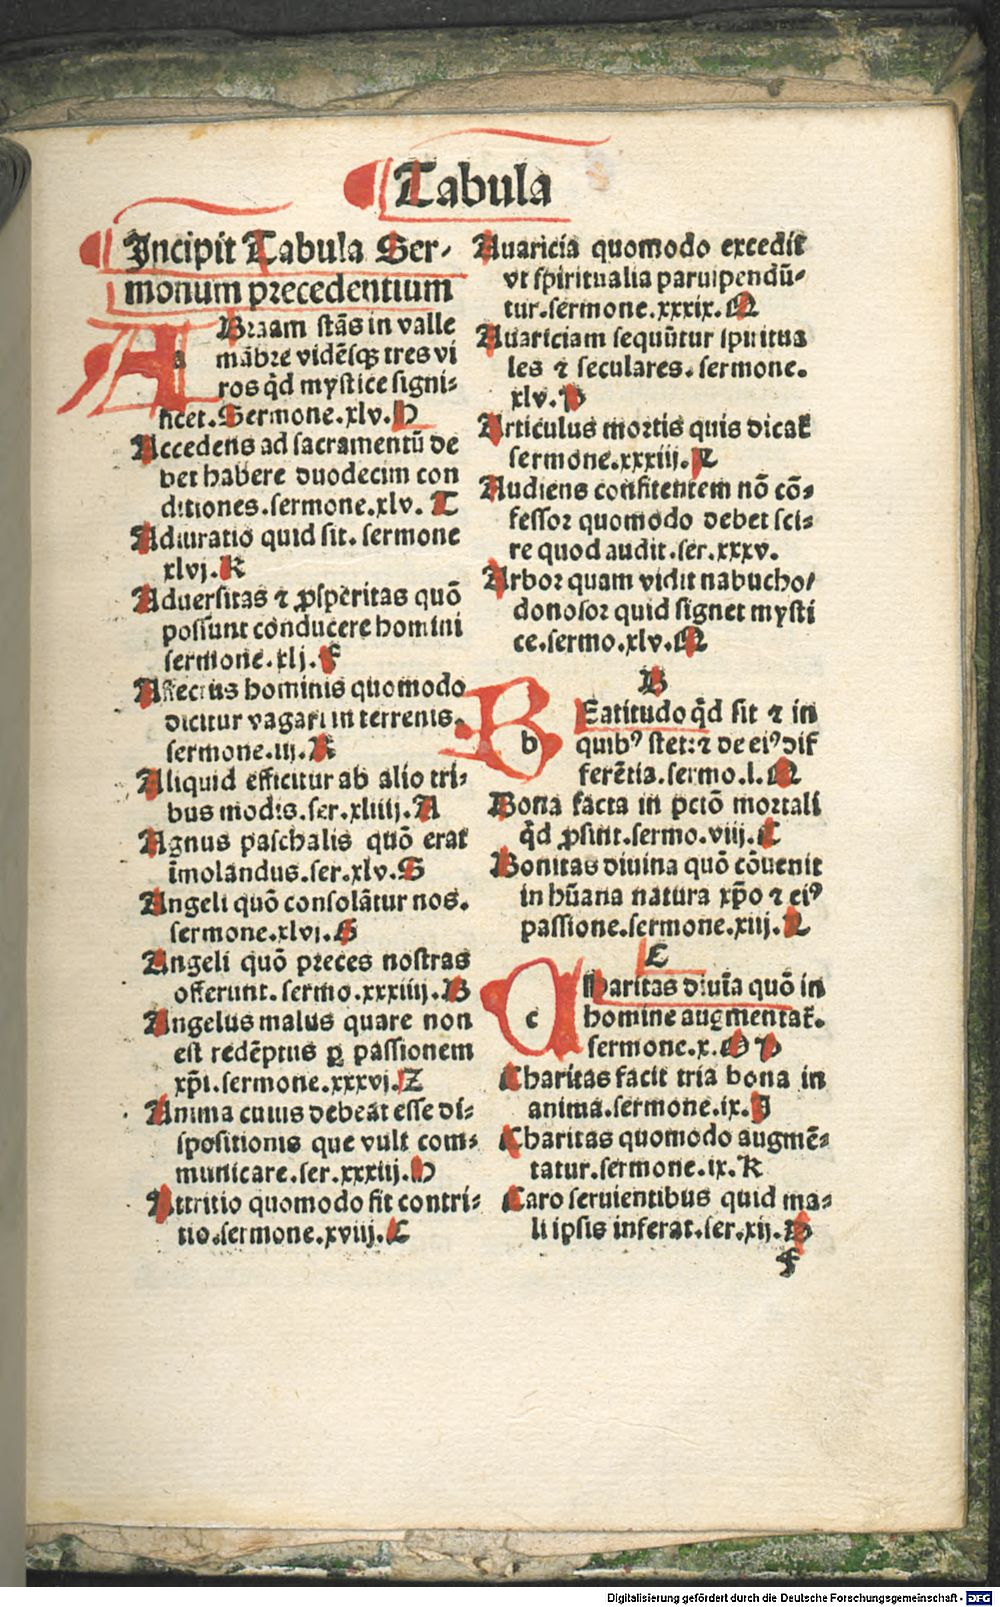 Tabula
Incipit Tabula Ser-
monum precedentium
ABraam stãs in valle
mãbre vidẽsqꝫ tres vi
ros q̃d mystice signi-
ficet. Sermone.xlv.H
Accedens ad sacramentũ de
bet habere duodecim con
ditiones.sermone.xlv. T
Adiuratio quid sit. sermone
xlvj.K
Aduersitas ⁊ ꝓsperitas quõ
possunt conducere homini
sermone.xlj.F
Affectus hominis quomodo
dicitur vagari in terrenis.
sermone.iij.K
Aliquid efficitur ab alio tri-
bus modis.ser.xliiij.A
Agnus paschalis quõ erat̃
ĩmolandus.ser.xlv.S
Angeli quõ consolãtur nos.
sermone.xlvj.G
Angeli quõ preces nostras
offerunt. sermo.xxxiiij.B
Angelus malus quare non
est redẽptus ꝑ passionem
xp̃i.sermone.xxxvj.Z
Anima cuius debeat esse di-
spositionis que vult com-
municare.ser.xxxiij.H
Attritio quomodo fit contri-
tio.sermone.xviij.C
Auaricia quomodo excedit
vt spiritualia paruipendũ-
tur.sermone.xxxix.M
Auariciam sequũtur spiritua
les ⁊ seculares. sermone.
xlv.P
Articulus mortis quis dicat̃
sermone.xxxiij.R
Audiens confitentem nõ cõ-
fessor quomodo debet sci-
re quod audit.ser.xxxv.
Arbor quam vidit nabucho/
donosor quid signet mysti
ce.sermo.xlv.M
B
b
BEatitudo q̃d sit ⁊ in
quibꝰ stet:⁊ de eiꝰ dif
ferẽtia.sermo.l.M
Bona facta in pctõ mortali
q̃d ꝓsint.sermo.viij.C
Bonitas diuina quõ cõuenit
in hũana natura xp̃o ⁊ eiꝰ
passione.sermone.xiij.L
C
c
CHaritas diuĩa quõ in
homine augmentat̃.
sermone.x.O P
Charitas facit tria bona in
anima.sermone.ix.I
Charitas quomodo augmẽ-
tatur.sermone.ix.K
Caro seruientibus quid ma-
li ipsis inferat.ser.xij.B
f
Digitalisierung gefördert durch die Deutsche Forschungsgemeinschaft - DFG